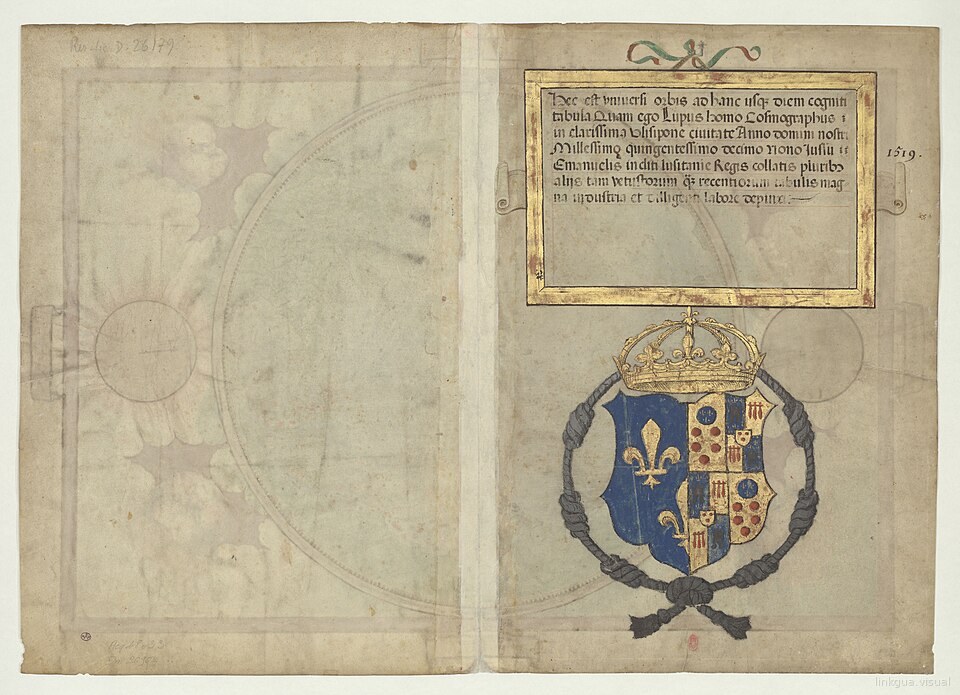 Res. Ge D. 26179
Hec est vniuersi orbis ad hanc usq; diem cogniti
tabula Quam ego Lupus homo Cosmographus i
in clarissima Vlisipone ciuitate Anno domini nostri
Millessimo quingentessimo decimo nono Jussu
Emanuelis incliti lusitanie Regis collatis pluribꝫ
aliis tam vetustorum qꝫ recentiorum tabulis mag
na industria et dilligenti labore depinxi
1519.
linkgua.visual